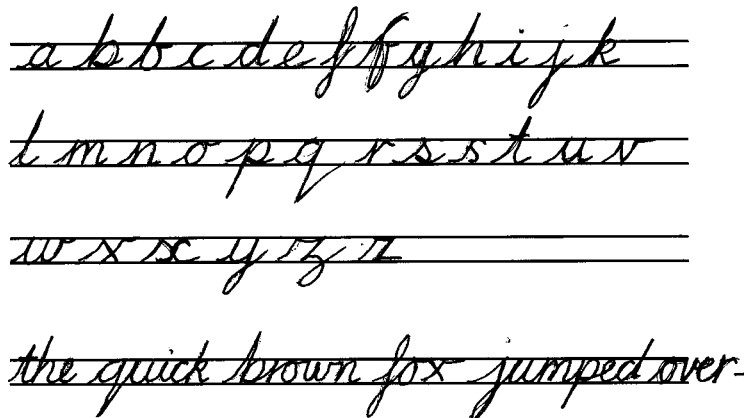 a b b c d e f f g h i j k
l m n o p q r s s t u v
w x x y z z
the quick brown fox jumped over-